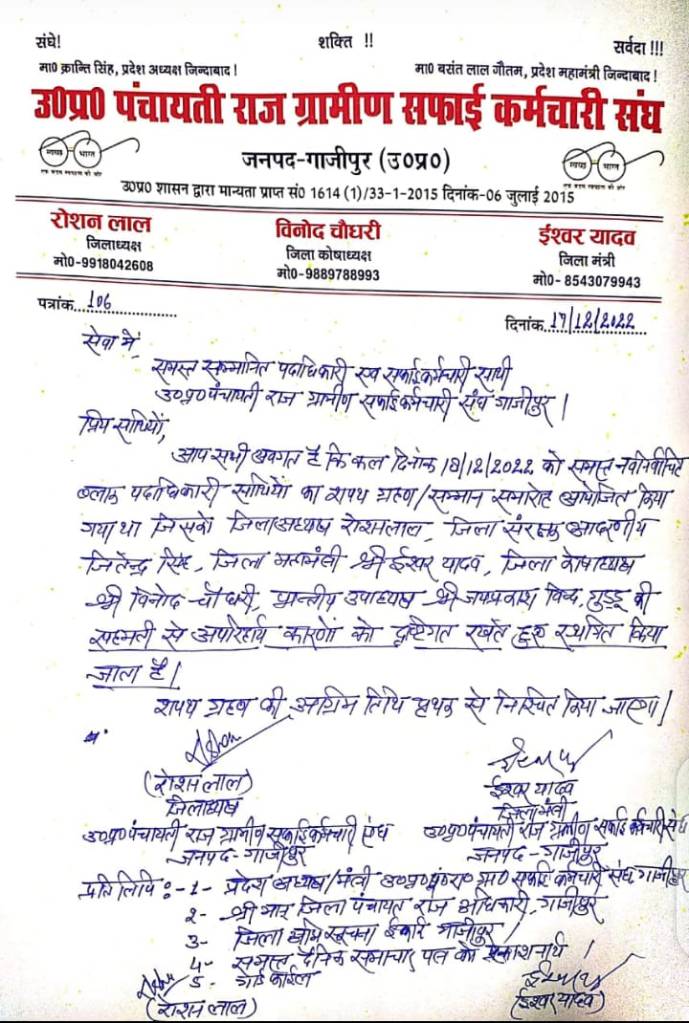 संघे!
शक्ति !!
सर्वदा !!!
मा0 क्रान्ति सिंह, प्रदेश अध्यक्ष जिन्दाबाद !
मा0 बसंत लाल गौतम, प्रदेश महामंत्री जिन्दाबाद !
उ0प्र0 पंचायती राज ग्रामीण सफाई कर्मचारी संघ
स्वच्छ भारत
एक कदम स्वच्छता की ओर
जनपद-गाजीपुर (उ0प्र0)
स्वच्छ भारत
एक कदम स्वच्छता की ओर
उ0प्र0 शासन द्वारा मान्यता प्राप्त सं0 1614 (1)/33-1-2015 दिनांक-06 जुलाई 2015
रोशन लाल
जिलाध्यक्ष
मो0-9918042608
विनोद चौधरी
जिला कोषाध्यक्ष
मो0-9889788993
ईश्वर यादव
जिला मंत्री
मो0- 8543079943
पत्रांक.. 106
दिनांक.. 17/12/2022
सेवा में,
समस्त सम्मानित पदाधिकारी एव सफाई कर्मचारी साथी
उ०प्र० पंचायती राज ग्रामीण सफाई कर्मचारी संघ गाजीपुर।
प्रिय साथियों,
आप सभी अवगत है कि कल दिनांक 18/12/2022 को समस्त नवनिर्वाचित
ब्लाक पदाधिकारी साथियों का शपथ ग्रहण/सम्मान समारोह आयोजित किया
गया था जिसको जिलाअध्यक्ष रोशनलाल, जिला संरक्षक आदरणीय
जितेन्द्र सिंह, जिला महामंत्री श्री ईश्वर यादव, जिला कोषाध्यक्ष
श्री विनोद चौधरी, प्रान्तीय उपाध्यक्ष श्री जयप्रकाश विन्द, गुड्डू की
सहमती से अपरिहार्य कारणों को दृष्टिगत रखते हुए स्थगित किया
जाता है।
शपथ ग्रहण की अग्रिम तिथि पृथक से निश्चित किया जाएगा।
(रोशन लाल)
जिलाध्यक्ष
उ०प्र० पंचायती राज ग्रामीण सफाई कर्मचारी संघ
जनपद- गाजीपुर
ईश्वर यादव
जिलामंत्री
उ०प्र० पंचायती राज ग्रामीण सफाई कर्मचारी संघ
जनपद- गाजीपुर
प्रतिलिपि:- 1- प्रदेश अध्यक्ष/मंत्री उ०प्र०पं०रा० ग्रा० सफाई कर्मचारी संघ गाजीपुर
2- श्री मान जिला पंचायत राज अधिकारी, गाजीपुर
3- जिला सूचना ईकाई गाजीपुर।
4- समस्त दैनिक समाचार पत्र को प्रकाशनार्थ।
5- गार्ड फाईल
(रोशन लाल)
(ईश्वर यादव)